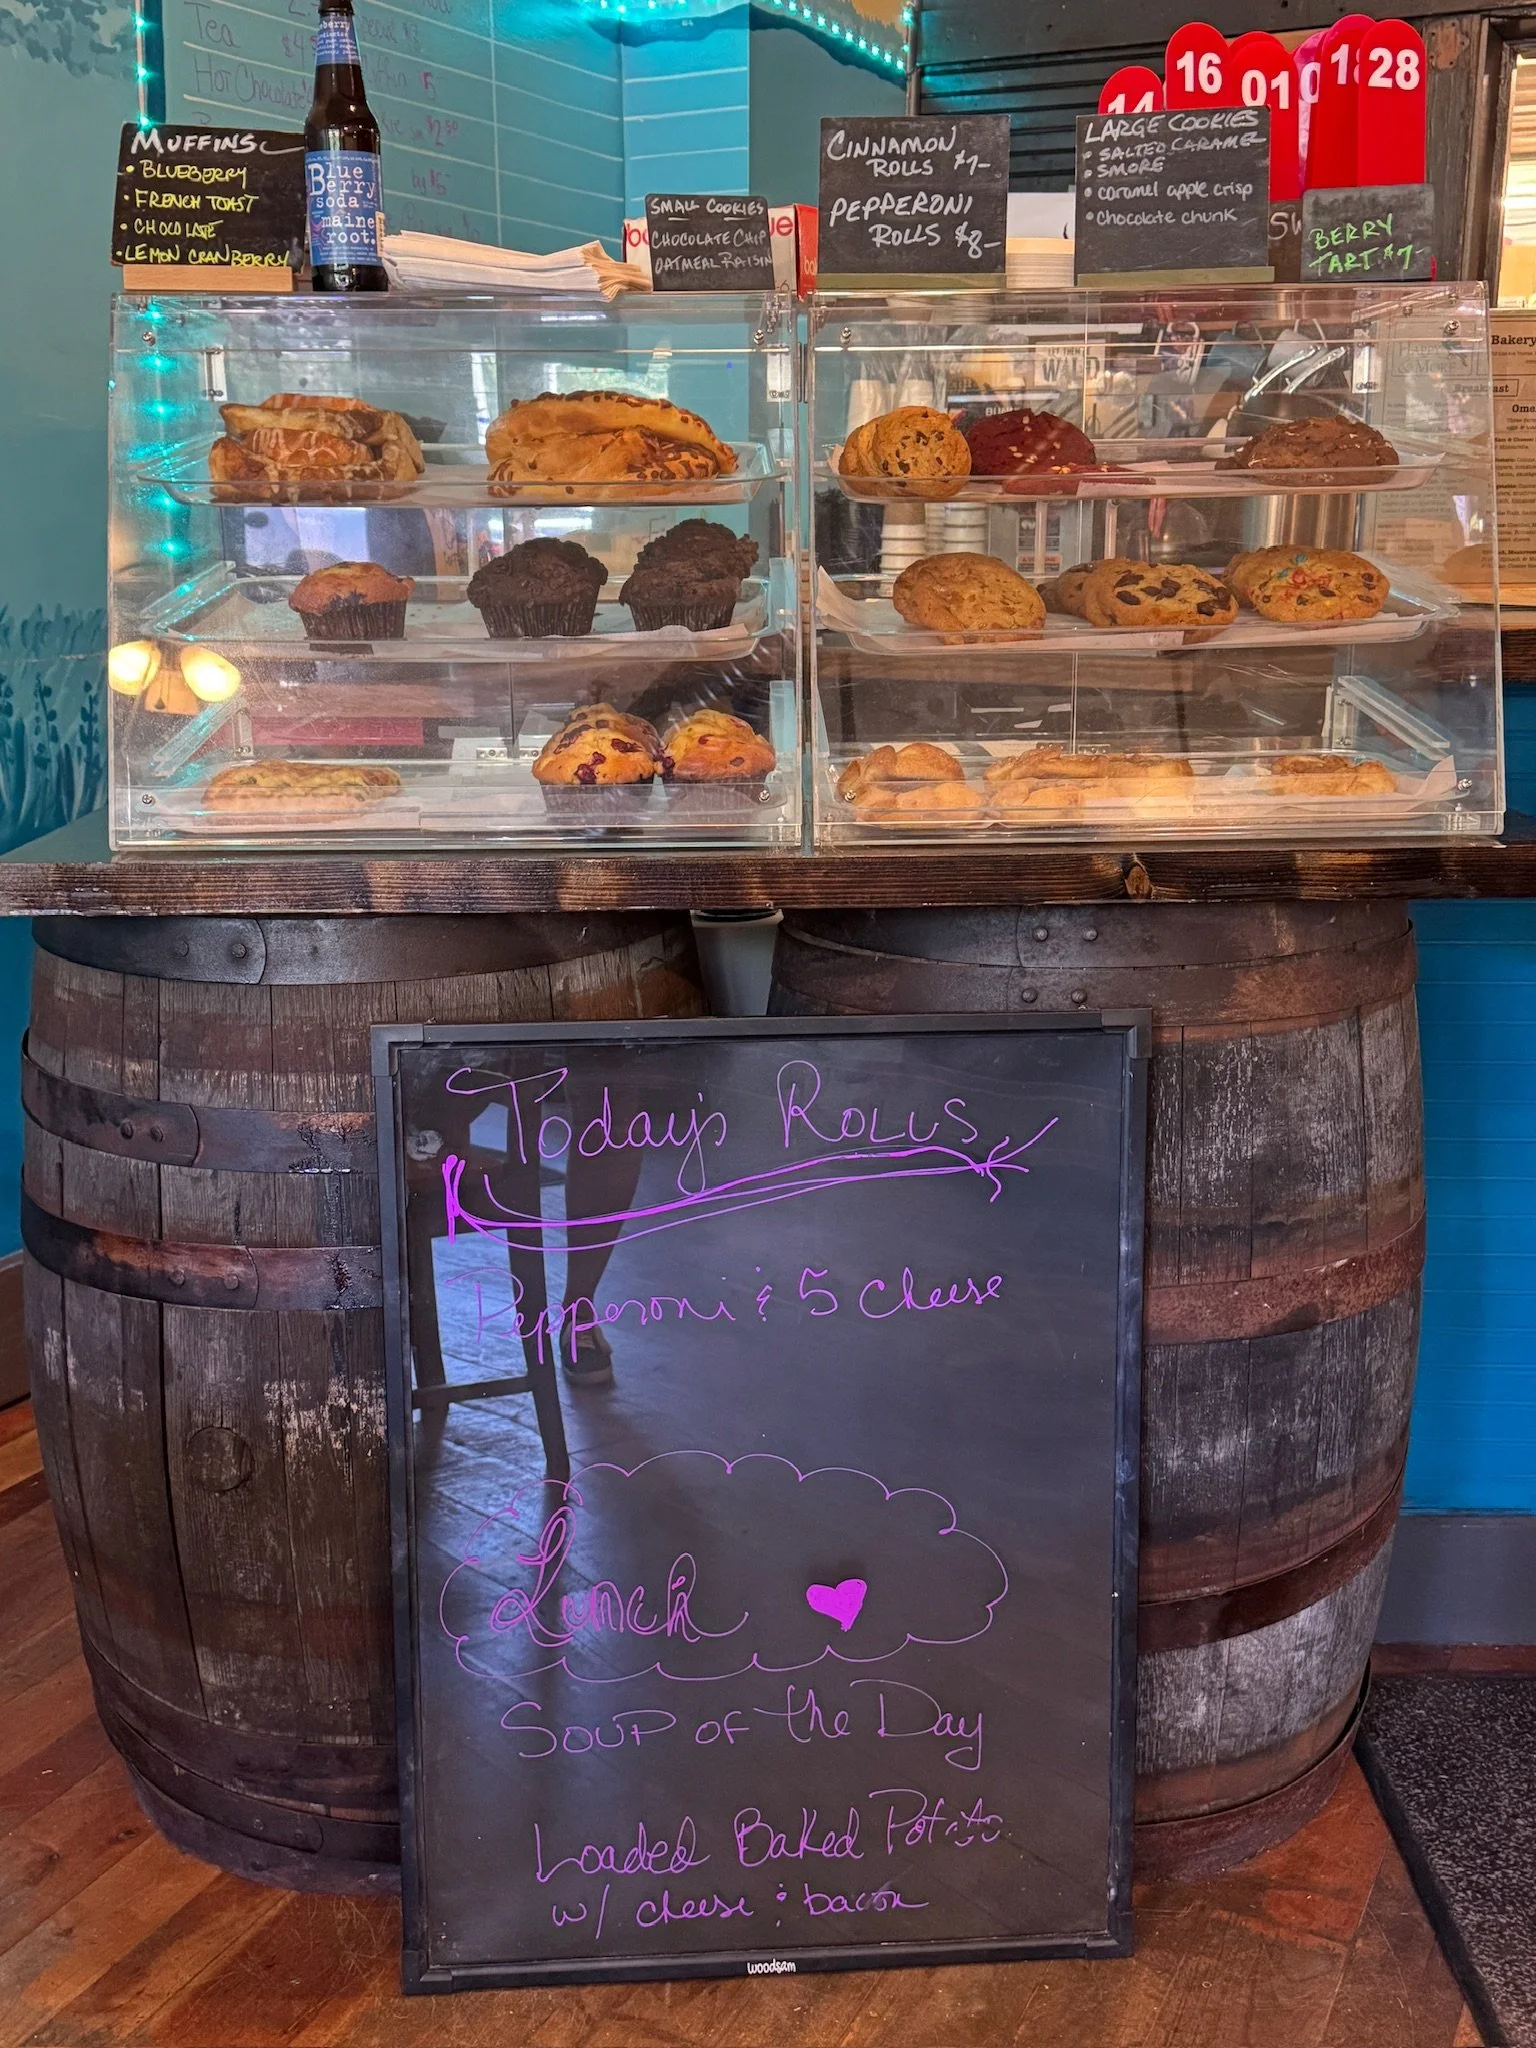 Tea
Hot Chocolate
$2.50
by $5
MUFFINS
• BLUEBERRY
• FRENCH TOAST
• CHOCOLATE
• LEMON CRANBERRY
Blue
Berry
soda
maine
root.
SMALL COOKIES
CHOCOLATE CHIP
OATMEAL RAISIN
CINNAMON
ROLLS $7-
PEPPERONI
ROLLS $8-
14
16
01
28
LARGE COOKIES
• SALTED CARAMEL
• SMORE
• caramel apple crisp
• Chocolate chunk
BERRY
TART $7-
Bakery
Breakfast
Today's ROLLS
Pepperoni & 5 cheese
Lunch
SOUP OF the Day
Loaded Baked Potato
w/ cheese & bacon
woodsam